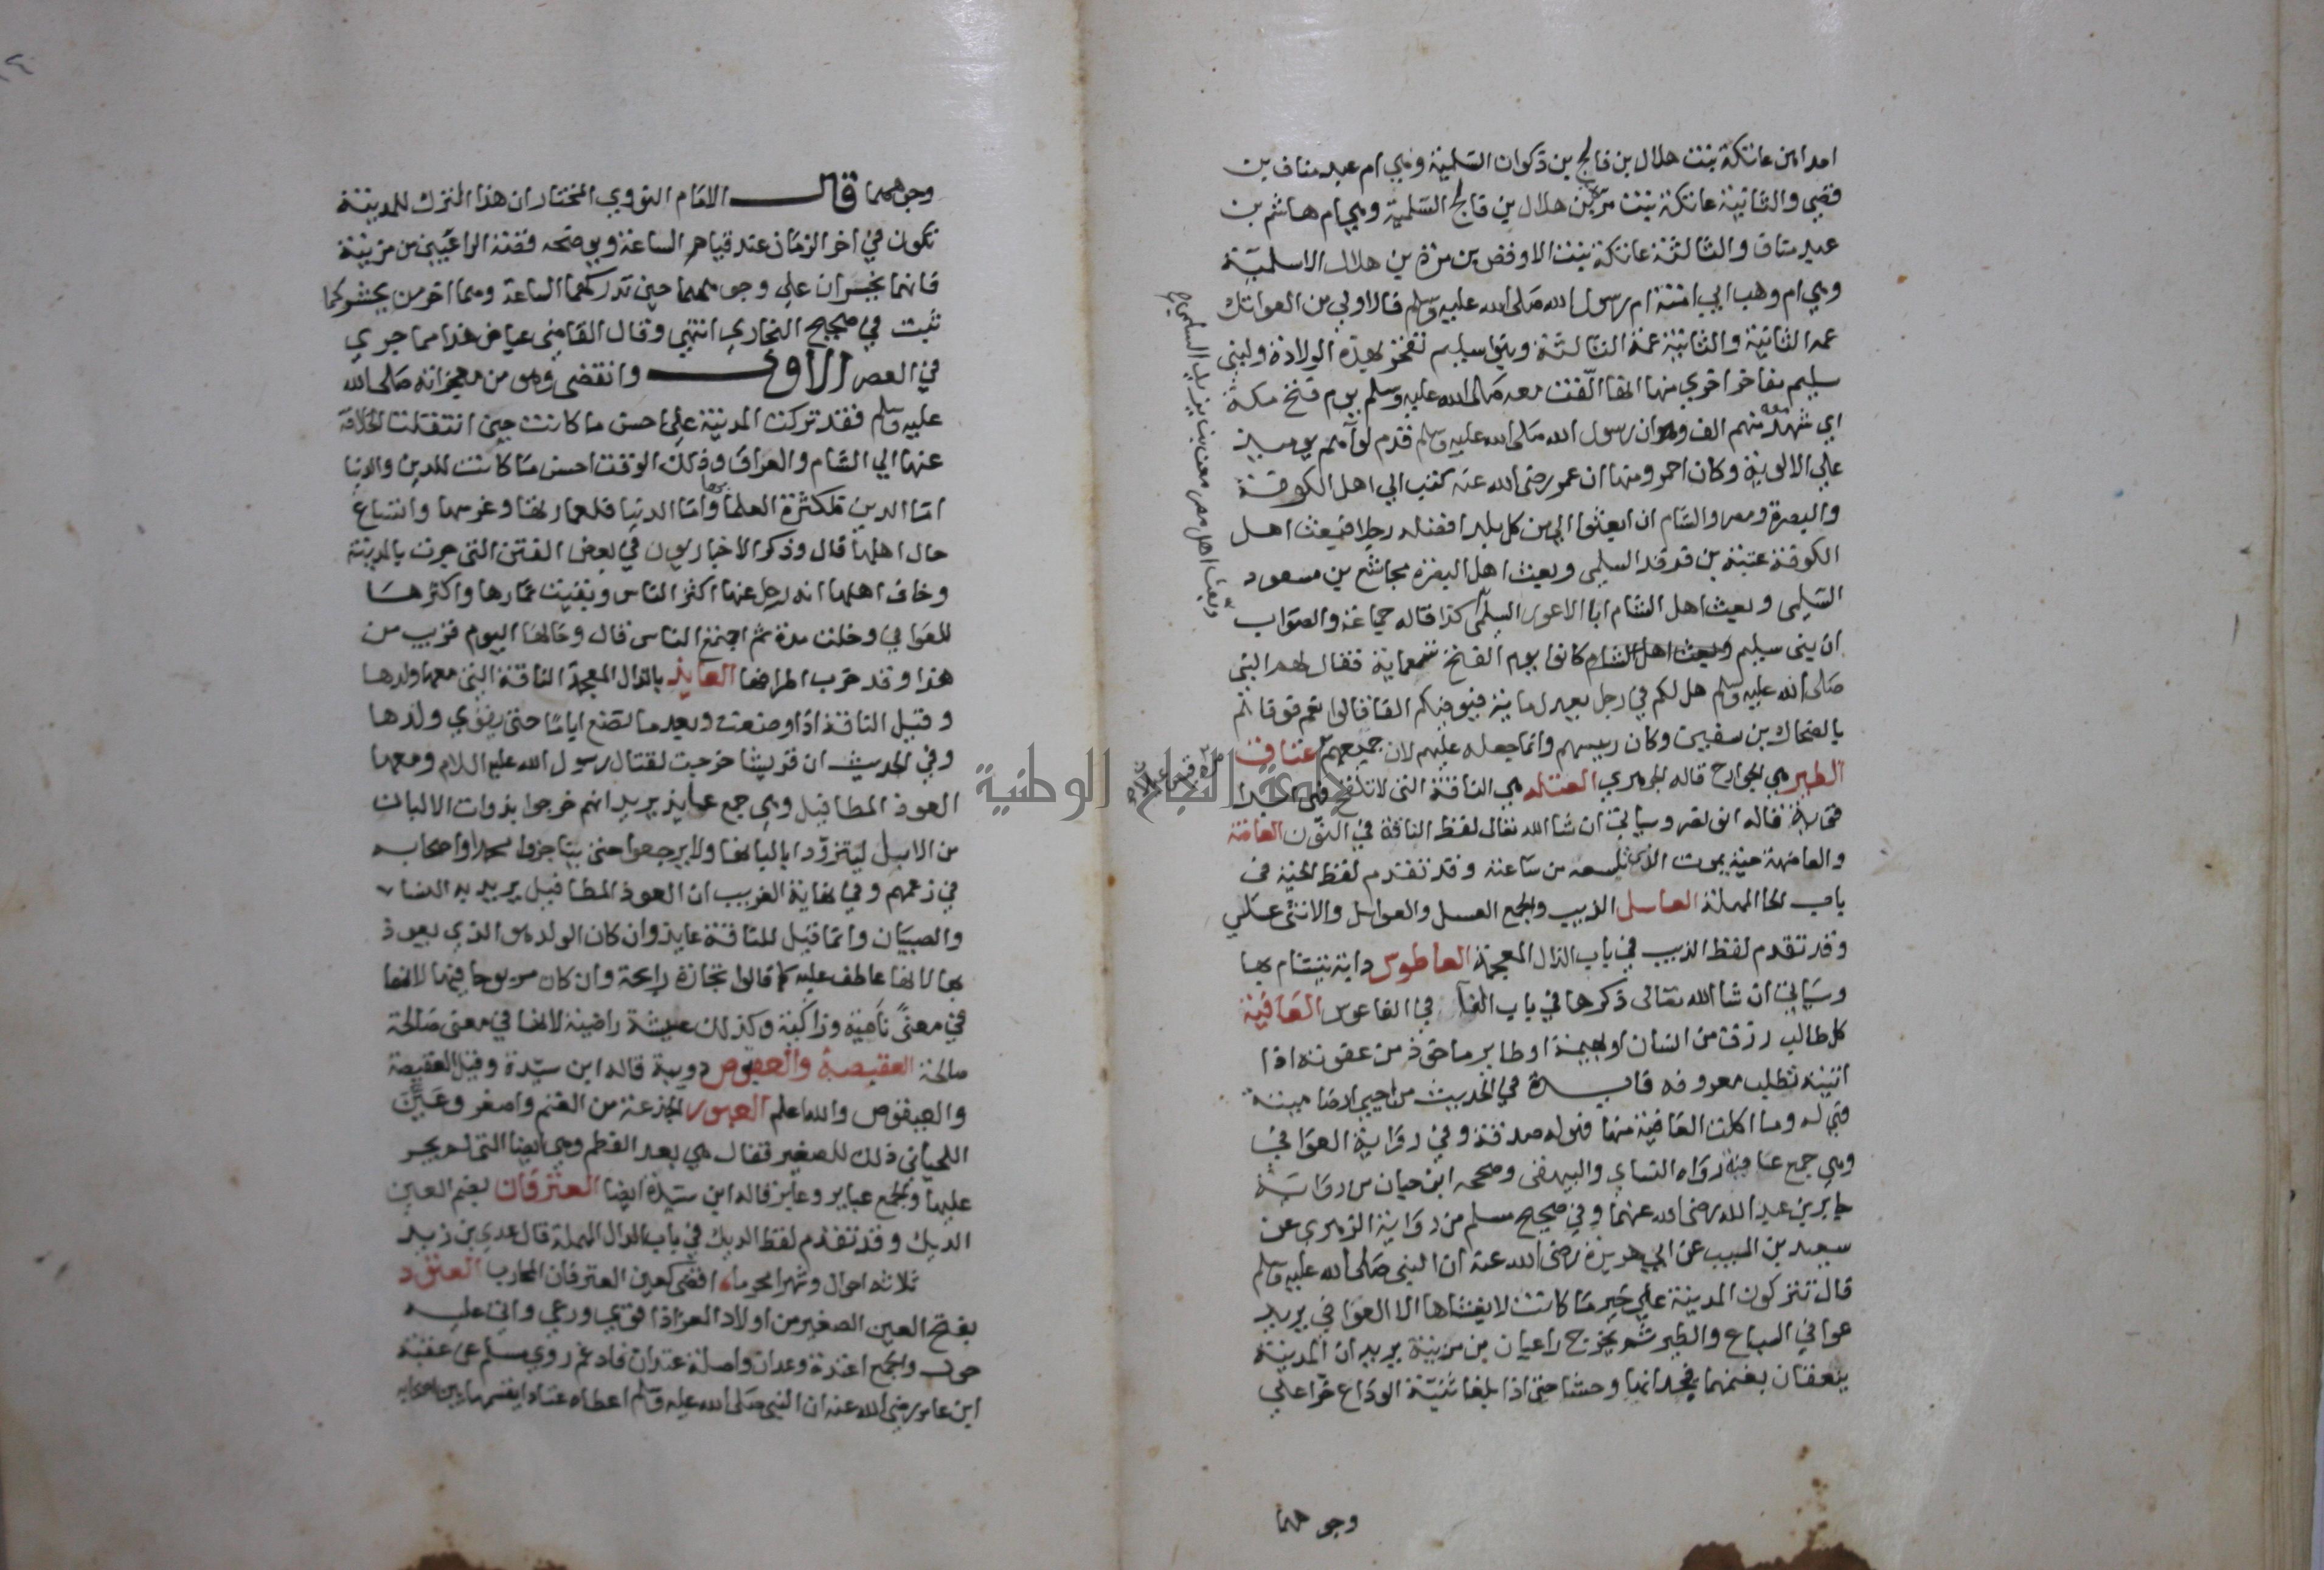 احداهن عاتكة بنت هلال بن فالج بن ذكوان السلمية وهي ام عبد مناف بن
قصي والثانية عاتكة بنت مرة بن هلال بن فالج السلمية وهي ام هاشم بن
عبد مناف والثالثة عاتكة بنت الاوقص بن مرة بن هلال الاسلمية
وهي ام وهب ابي امنة ام رسول الله صلى الله عليه وسلم فالاولي من العواتك
عمة الثانية والثانية عمة الثالثة وبنو سليم تفخر بهذه الولادة ولبني
سليم مفاخر اخري منها انها الفت معه صلى الله عليه وسلم يوم فتح مكة
اي شهده معه منهم الف وان رسول الله صلى الله عليه وسلم قدم لوآهم يوميذ
علي الالوية وكان احمر ومنها ان عمر رضي الله عنه كتب الي اهل الكوفة
والبصرة ومصر والشام ان ابعثوا الي من كل بلد افضله رجلا فبعث اهل
الكوفة عتبة بن فرقد السلمي وبعث اهل البصرة مجاشع بن مسعود
السلمي وبعث اهل الشام ابا الاعور السلمي كذا قاله جماعة والصواب
وبعث اهل مصر معن بن يزيد السلمي
ان بني سليم كانوا يوم الفتح تسعماية فقال لهم النبي
صلى الله عليه وسلم هل لكم في رجل يعدل ماية فيوفيكم الفا قالوا نعم فوفاهم
بالضحاك بن سفين وكان رييسهم وانما جعله عليهم لان جميعهم عتاق
الطير هي الجوارح قاله الجوهري العتله هي الناقة التي لا تلقح فهي ابدا
قوية قاله ابو نصر وسياتي ان شا الله تعالى لفظ الناقة في النون العاضه
والعاضهة حية يموت الذي تلسعه من ساعته وقد تقدم لفظ الحية في
باب الحا المهملة العاسل الذيب والجمع العسل والعواسل والانثى عسلي
وقد تقدم لفظ الذيب في باب الذال المعجمة العاطوس دابة يتشام بها
وسياتي ان شا الله تعالى ذكرها في باب الفا في الفاعوس العافية
كل طالب رزق من انسان او بهيمة او طاير ماخوذ من عفوته اذا
اتيته تطلب معروفه فايدة في الحديث من احيي ارضا ميتة
فهي له وما اكلت العافية منها فهو له صدقة وفي رواية العوافي
وهي جمع عافية رواه النساي والبيهقي وصححه ابن حبان من رواية
جابر بن عبد الله رضي الله عنهما وفي صحيح مسلم من رواية الزهري عن
سعيد بن المسيب عن ابي هريرة رضي الله عنه ان النبي صلى الله عليه وسلم
قال تتركون المدينة علي خير ما كانت لا يغشاها الا العوافي يريد
عوافي السباع والطير ثم يخرج راعيان من مزينة يريدان المدينة
ينعقان بغنمهما فيجدانها وحشا حتى اذا بلغا ثنية الوداع خرا علي
وجوههما
وجوههما قال الامام النووي المختار ان هذا الترك للمدينة
تكون في اخر الزمان عند قيام الساعة ويوضحه قصة الراعيين من مزينة
فانهما يخران علي وجوههما حين تدركهما الساعة وهما اخر من يحشر كما
ثبت في صحيح البخاري انتهي وقال القاضي عياض هذا مما جري
في العصر الاول وانقضى وهو من معجزاته صلى الله
عليه وسلم فقد تركت المدينة علي احسن ما كانت حين انتقلت الخلافة
عنها الي الشام والعراق وذلك الوقت احسن ما كانت للدين والدنيا
اما الدين فلكثرة العلما بها واما الدنيا فلعمارتها وغرسها واتساع
حال اهلها قال وذكر الاخباريون في بعض الفتن التي جرت بالمدينة
وخاف اهلها انه رحل عنها اكثر الناس وبقيت ثمارها واكثرها
للعوافي وخلت مدة ثم اجتمع الناس قال وحالها اليوم قريب من
هذا وقد خرب اطرافها العايذ بالذال المعجمة الناقة التي معها ولدها
وقيل الناقة اذا وضعت وبعد ما تضع اياما حتى يقوي ولدها
وفي الحديث ان قريشا خرجت لقتال رسول الله عليه السلام ومعها
العوذ المطافيل وهي جمع عايذ يريد انهم خرجوا بذوات الالبان
من الابل ليتزودا بالبانها ولا يرجعوا حتى يناجزوا محمدا واصحابه
في زعمهم وفي نهاية الغريب ان العوذ المطافيل يريد به النسا
والصبيان وانما قيل للناقة عايذ وان كان الولد هو الذي يعوذ
بها لانها عاطف عليه كما قالوا تجارة رابحة وان كان مربوحا فيها لانها
في معنى نامية وزاكية وكذلك عيشة راضية لانها في معنى صالحة
صالحة العقيصة والعقوص دويبة قاله ابن سيدة وقيل العقيصة
والعيفوص والله اعلم العبور الجذعة من الغنم واصغر وعين
اللحياني ذلك للصغير فقال هي بعد الفطم وهي ايضا التي لم يجر
عليها والجمع عباير وعابر قاله ابن سيدة ايضا العترفان بضم العين
الديك وقد تقدم لفظ الديك في باب الدال المهملة قال عدي بن زيد
ثلاثة احوال وشهرا محرما، افضي كعين العترفان المحارب العتود
بفتح العين الصغير من اولاد المعز اذا قوي ورعي واتي عليه
حول والجمع اعتدة وعدان واصله عتدان فادغم روي مسلم عن عقبة
ابن عامر رضي الله عنه ان النبي صلى الله عليه وسلم اعطاه غنما يقسمها بين اصحابه
جامعة النجاح الوطنية